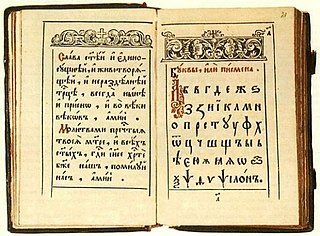 Слава ст҃ѣй и едино-
сꙋщнѣй, и животворѧ-
щей, и нераздѣлнѣй
трⷪ҇цѣ, всегда нынѣ
и присно, и во вѣки
вѣкѡвъ, аминь.
Молитвами прчⷭ҇тыѧ
твоеѧ мт҃ре, и всѣхъ
ст҃ыхъ, гдⷭ҇и і҆и҃се хрⷭ҇те
бж҃е нашъ, помилꙋй
насъ, аминь.
Бꙋквы, или писмена.
А б в г д е ж ѕ
з и і к л м н
о п р с т ꙋ ф х
ц ч ш щ ъ ы ь
ѣ ю ѧ ѡ
ѱ ѵ ѵпсілонъ.